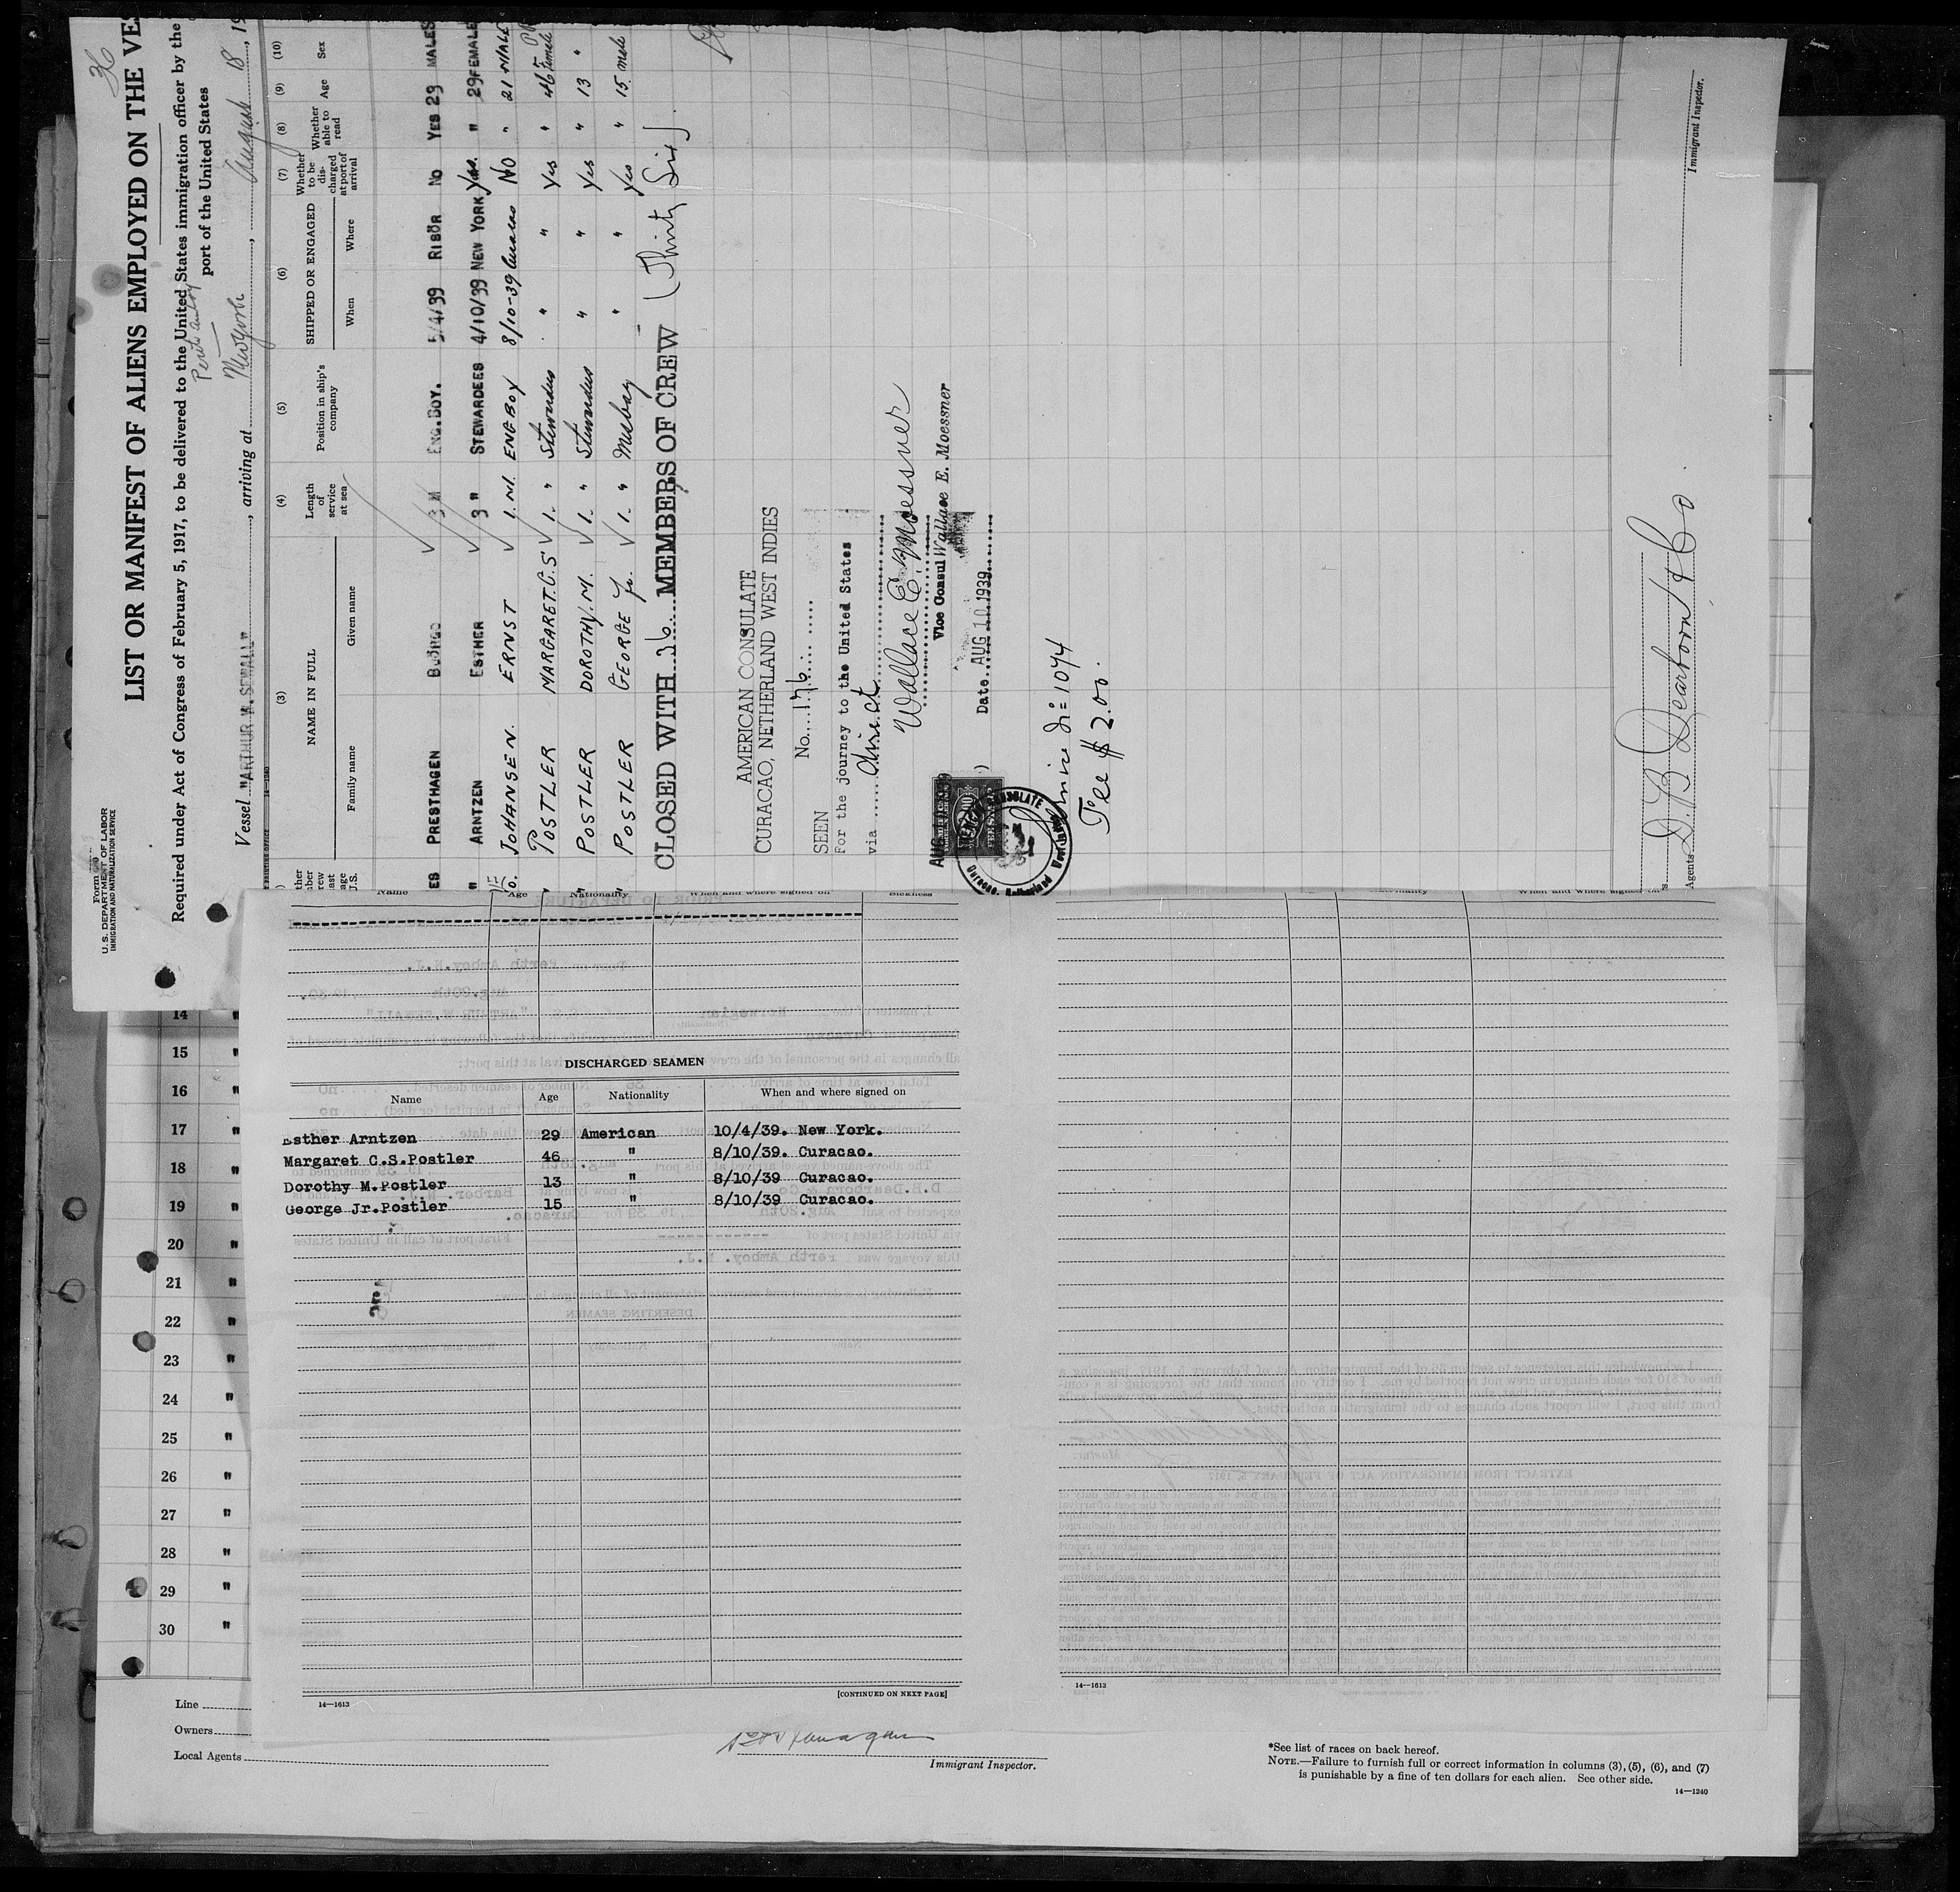 36
Form 680
U. S. DEPARTMENT OF LABOR
IMMIGRATION AND NATURALIZATION SERVICE
LIST OR MANIFEST OF ALIENS EMPLOYED ON THE VE
Required under Act of Congress of February 5, 1917, to be delivered to the United States immigration officer by the
port of the United States
Perth Amboy
Vessel "ARTHUR W. SEWALL", arriving at New York, August 18, 19
(3) (4) (5) (6) (7) (8) (9) (10)
NAME IN FULL
Family name Given name
Length of service at sea
Position in ship's company
SHIPPED OR ENGAGED
When Where
Whether to be discharged at port of arrival
Whether able to read
Age
Sex
ES PRESTHAGEN BJÖRGO 3 M ENG.BOY. 5/4/39 RISÖR NO YES 29 MALES
" ARNTZEN ESTHER 3 " STEWARDEES 4/10/39 NEW YORK Yes. " 29 FEMALE
JOHANSEN. ERNST 1. M. ENG BOY 8/10-39 Curacao NO " 21 MALE
" POSTLER MARGARET.C.S 1. " Stewardess " " Yes " 46 Female
" POSTLER DOROTHY.M. 1. " Stewardess " " Yes " 13 "
" POSTLER GEORGE Jr. 1. " Messboy " " Yes " 15 male
CLOSED WITH 36 MEMBERS OF CREW (Thirty Six)
AMERICAN CONSULATE
CURACAO, NETHERLAND WEST INDIES
No. 176
SEEN
For the journey to the United States
via direct
Wallace E. Moessner
Vice Consul Wallace E. Moessner
Date AUG 10 1939
Service No 1074
Fee $2.00.
D. B. Dearborn & Co
Agents
Immigrant Inspector.
Name Age Nationality When and where signed on Sickness
DISCHARGED SEAMEN
Name Age Nationality When and where signed on
Esther Arntzen 29 American 10/4/39. New York.
Margaret C.S.Postler 46 " 8/10/39. Curacao.
Dorothy M.Postler 13 " 8/10/39 Curacao.
George Jr.Postler 15 " 8/10/39 Curacao.
14—1613
[CONTINUED ON NEXT PAGE]
14—1613
14 "
15 "
16 "
17 "
18 "
19 "
20 "
21 "
22 "
23 "
24 "
25 "
26 "
27 "
28 "
29 "
30 "
Line
Owners
Local Agents
Immigrant Inspector.
*See list of races on back hereof.
NOTE.—Failure to furnish full or correct information in columns (3), (5), (6), and (7)
is punishable by a fine of ten dollars for each alien. See other side.
14—1240